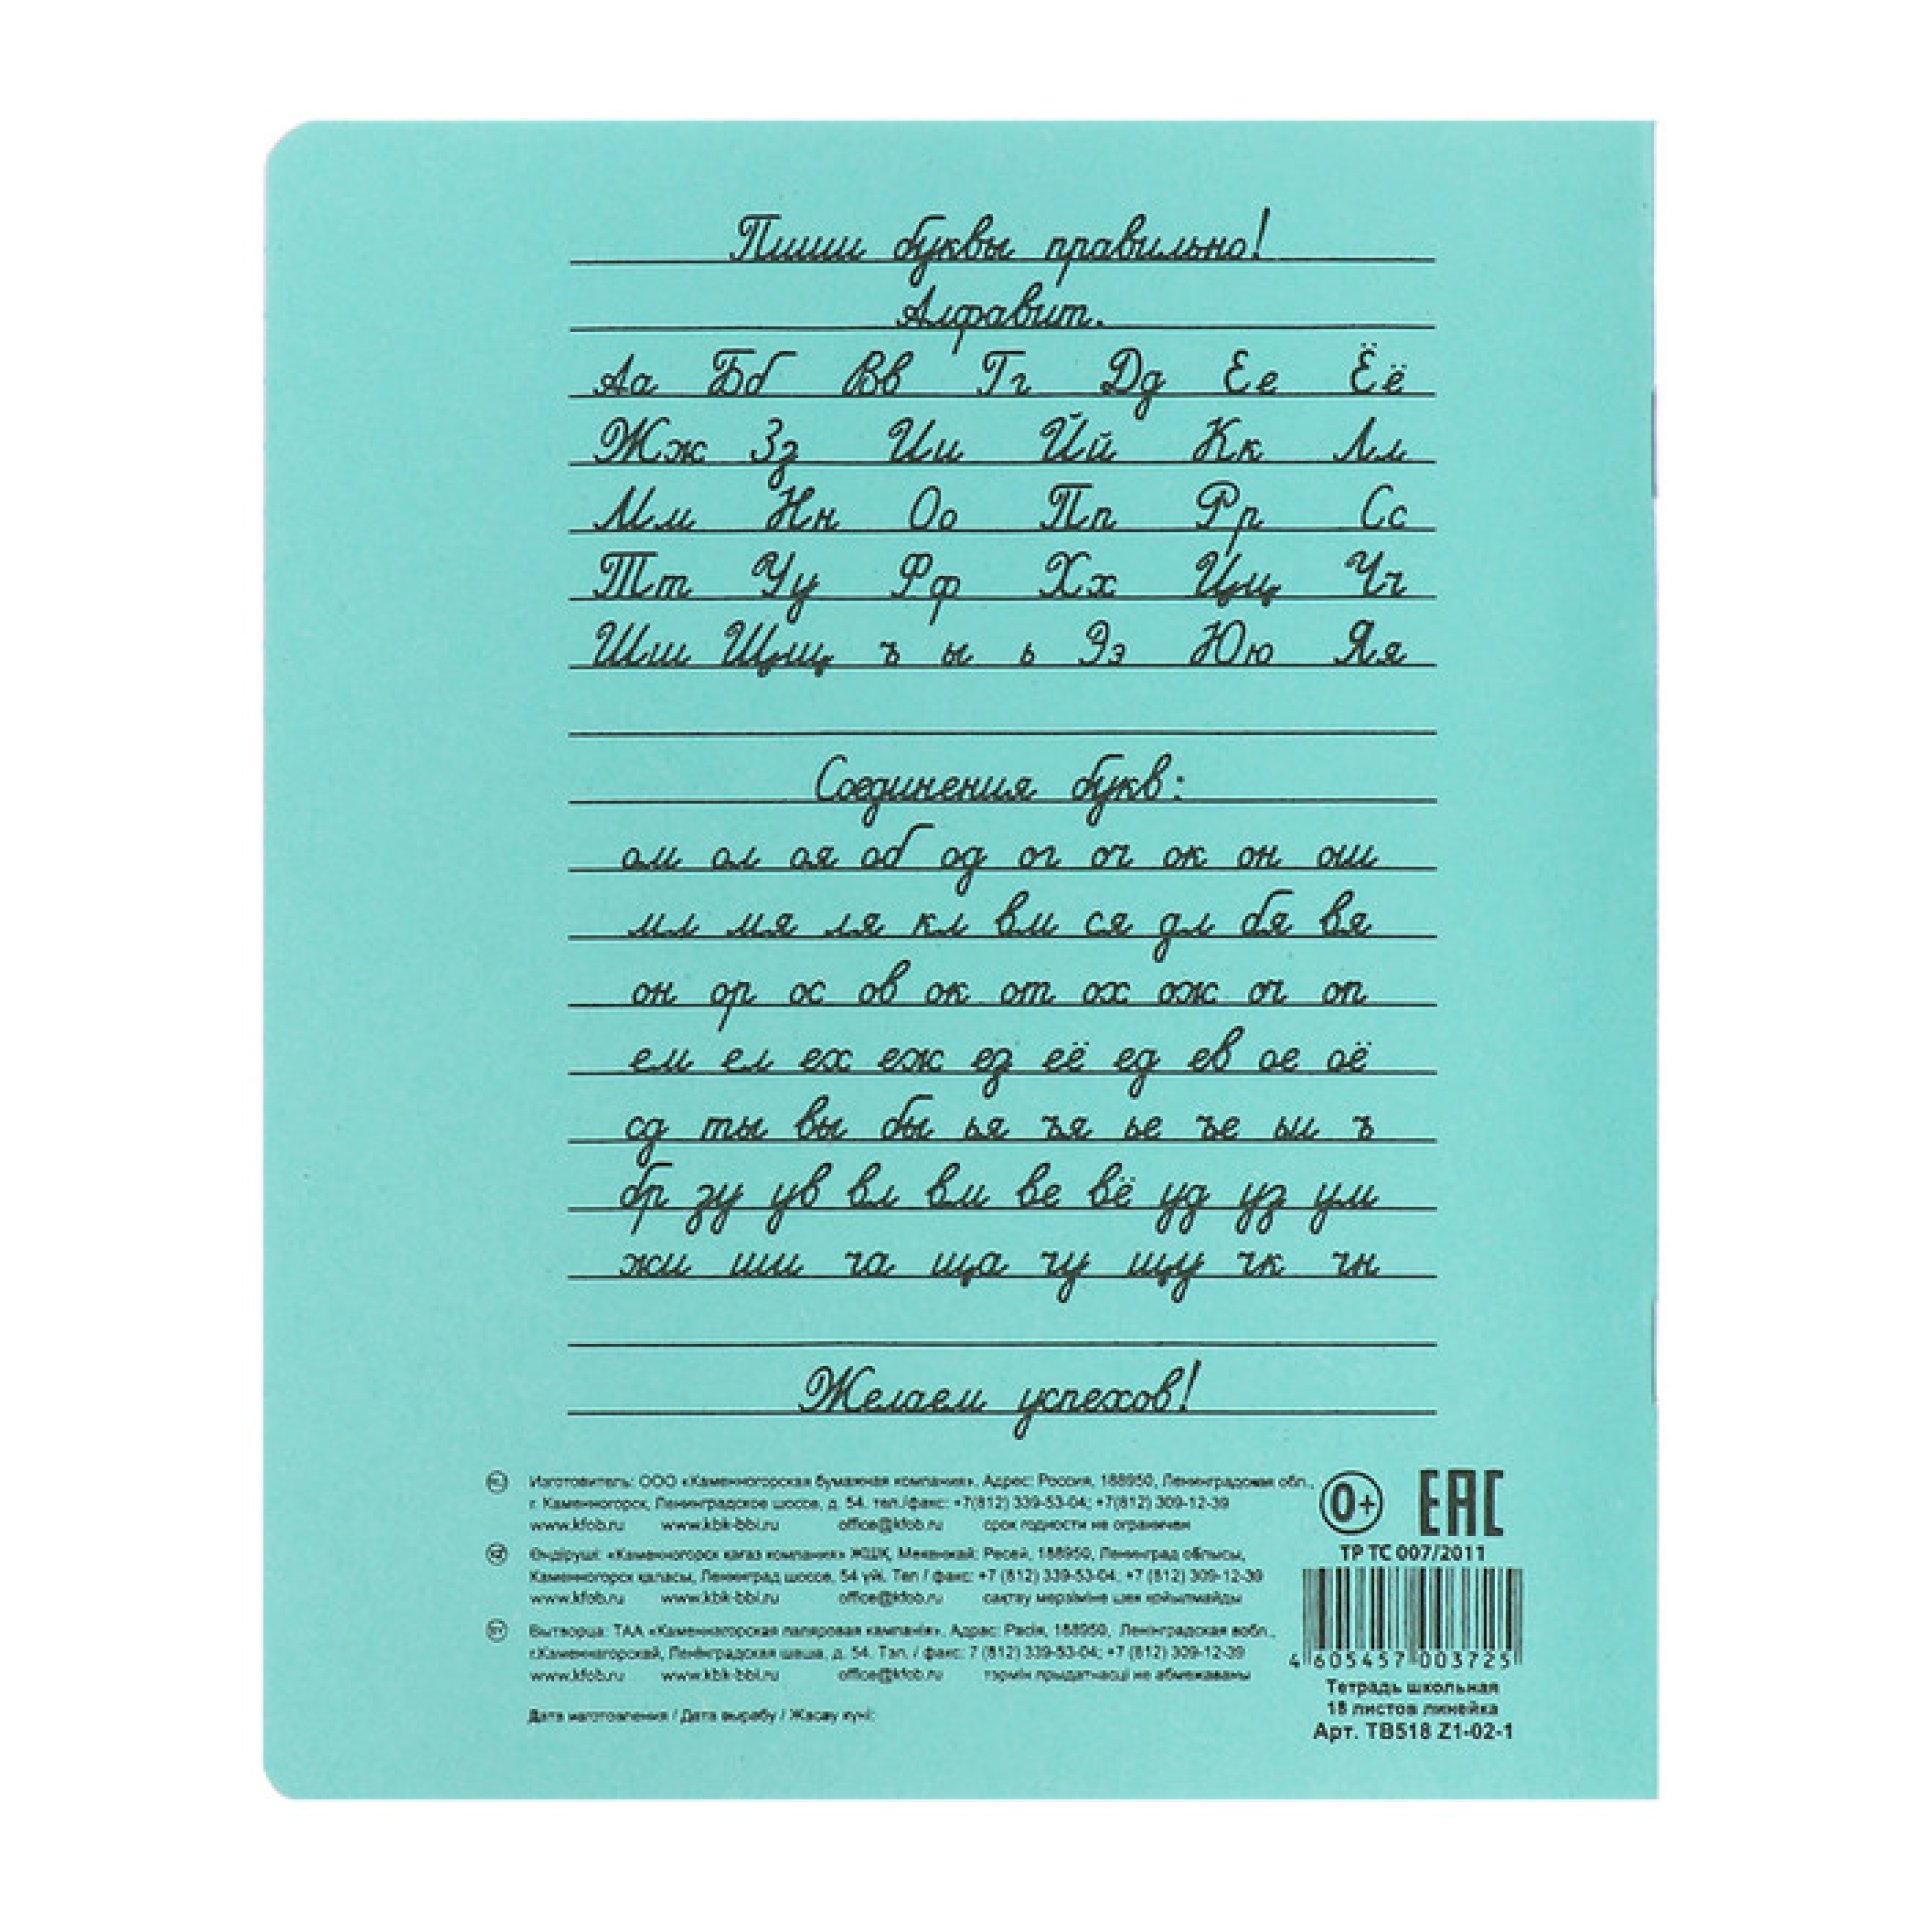 Пиши буквы правильно!
Алфавит.
Аа Бб Вв Гг Дд Ее Ёё
Жж Зз Ии Йй Кк Лл
Мм Нн Оо Пп Рр Сс
Тт Уу Фф Хх Цц Чч
Шш Щщ ъ ы ь Ээ Юю Яя
Соединения букв:
ам ал ая об од ог оч ок он ош
мл мя ля кл ви ся дл бя вя
он ор ос ов ок от ох ож оч оп
ем ел ех еж ез её ед ев ое оё
сд ты вы бы ья ъя ье ъе ьи ъ
бр зу ув вл ви ве вё уд уз ум
жи ши ча ща чу щу чк чн
Желаем успехов!
RU Изготовитель: ООО «Каменногорская бумажная компания». Адрес: Россия, 188950, Ленинградская обл.,
г. Каменногорск, Ленинградское шоссе, д. 54. тел./факс: +7(812) 339-53-04; +7(812) 309-12-39
www.kfob.ru www.kbk-bbi.ru office@kfob.ru срок годности не ограничен
KZ Өндіруші: «Каменногорск кағаз компания» ЖШҚ, Мекенжай: Ресей, 188950, Ленинград облысы,
Каменногорск қаласы, Ленинград шоссе, 54 үй. Тел / факс: +7 (812) 339-53-04; +7 (812) 309-12-39
www.kfob.ru www.kbk-bbi.ru office@kfob.ru сақтау мерзіміне шек қойылмайды
BY Вытворца: ТАА «Каменнагорская папяровая кампанія». Адрас: Расія, 188950, Ленінградская вобл.,
г.Каменнагорскай, Ленінградская шаша, д. 54. Тэл. / факс: 7 (812) 339-53-04; +7 (812) 309-12-39
www.kfob.ru www.kbk-bbi.ru office@kfob.ru тэрмін прыдатнасці не абмежаваны
Дата изготовления / Дата вырабу / Жасау күні:
0+ EAC
ТР ТС 007/2011
4 605457 003725
Тетрадь школьная
18 листов линейка
Арт. ТВ518 Z1-02-1